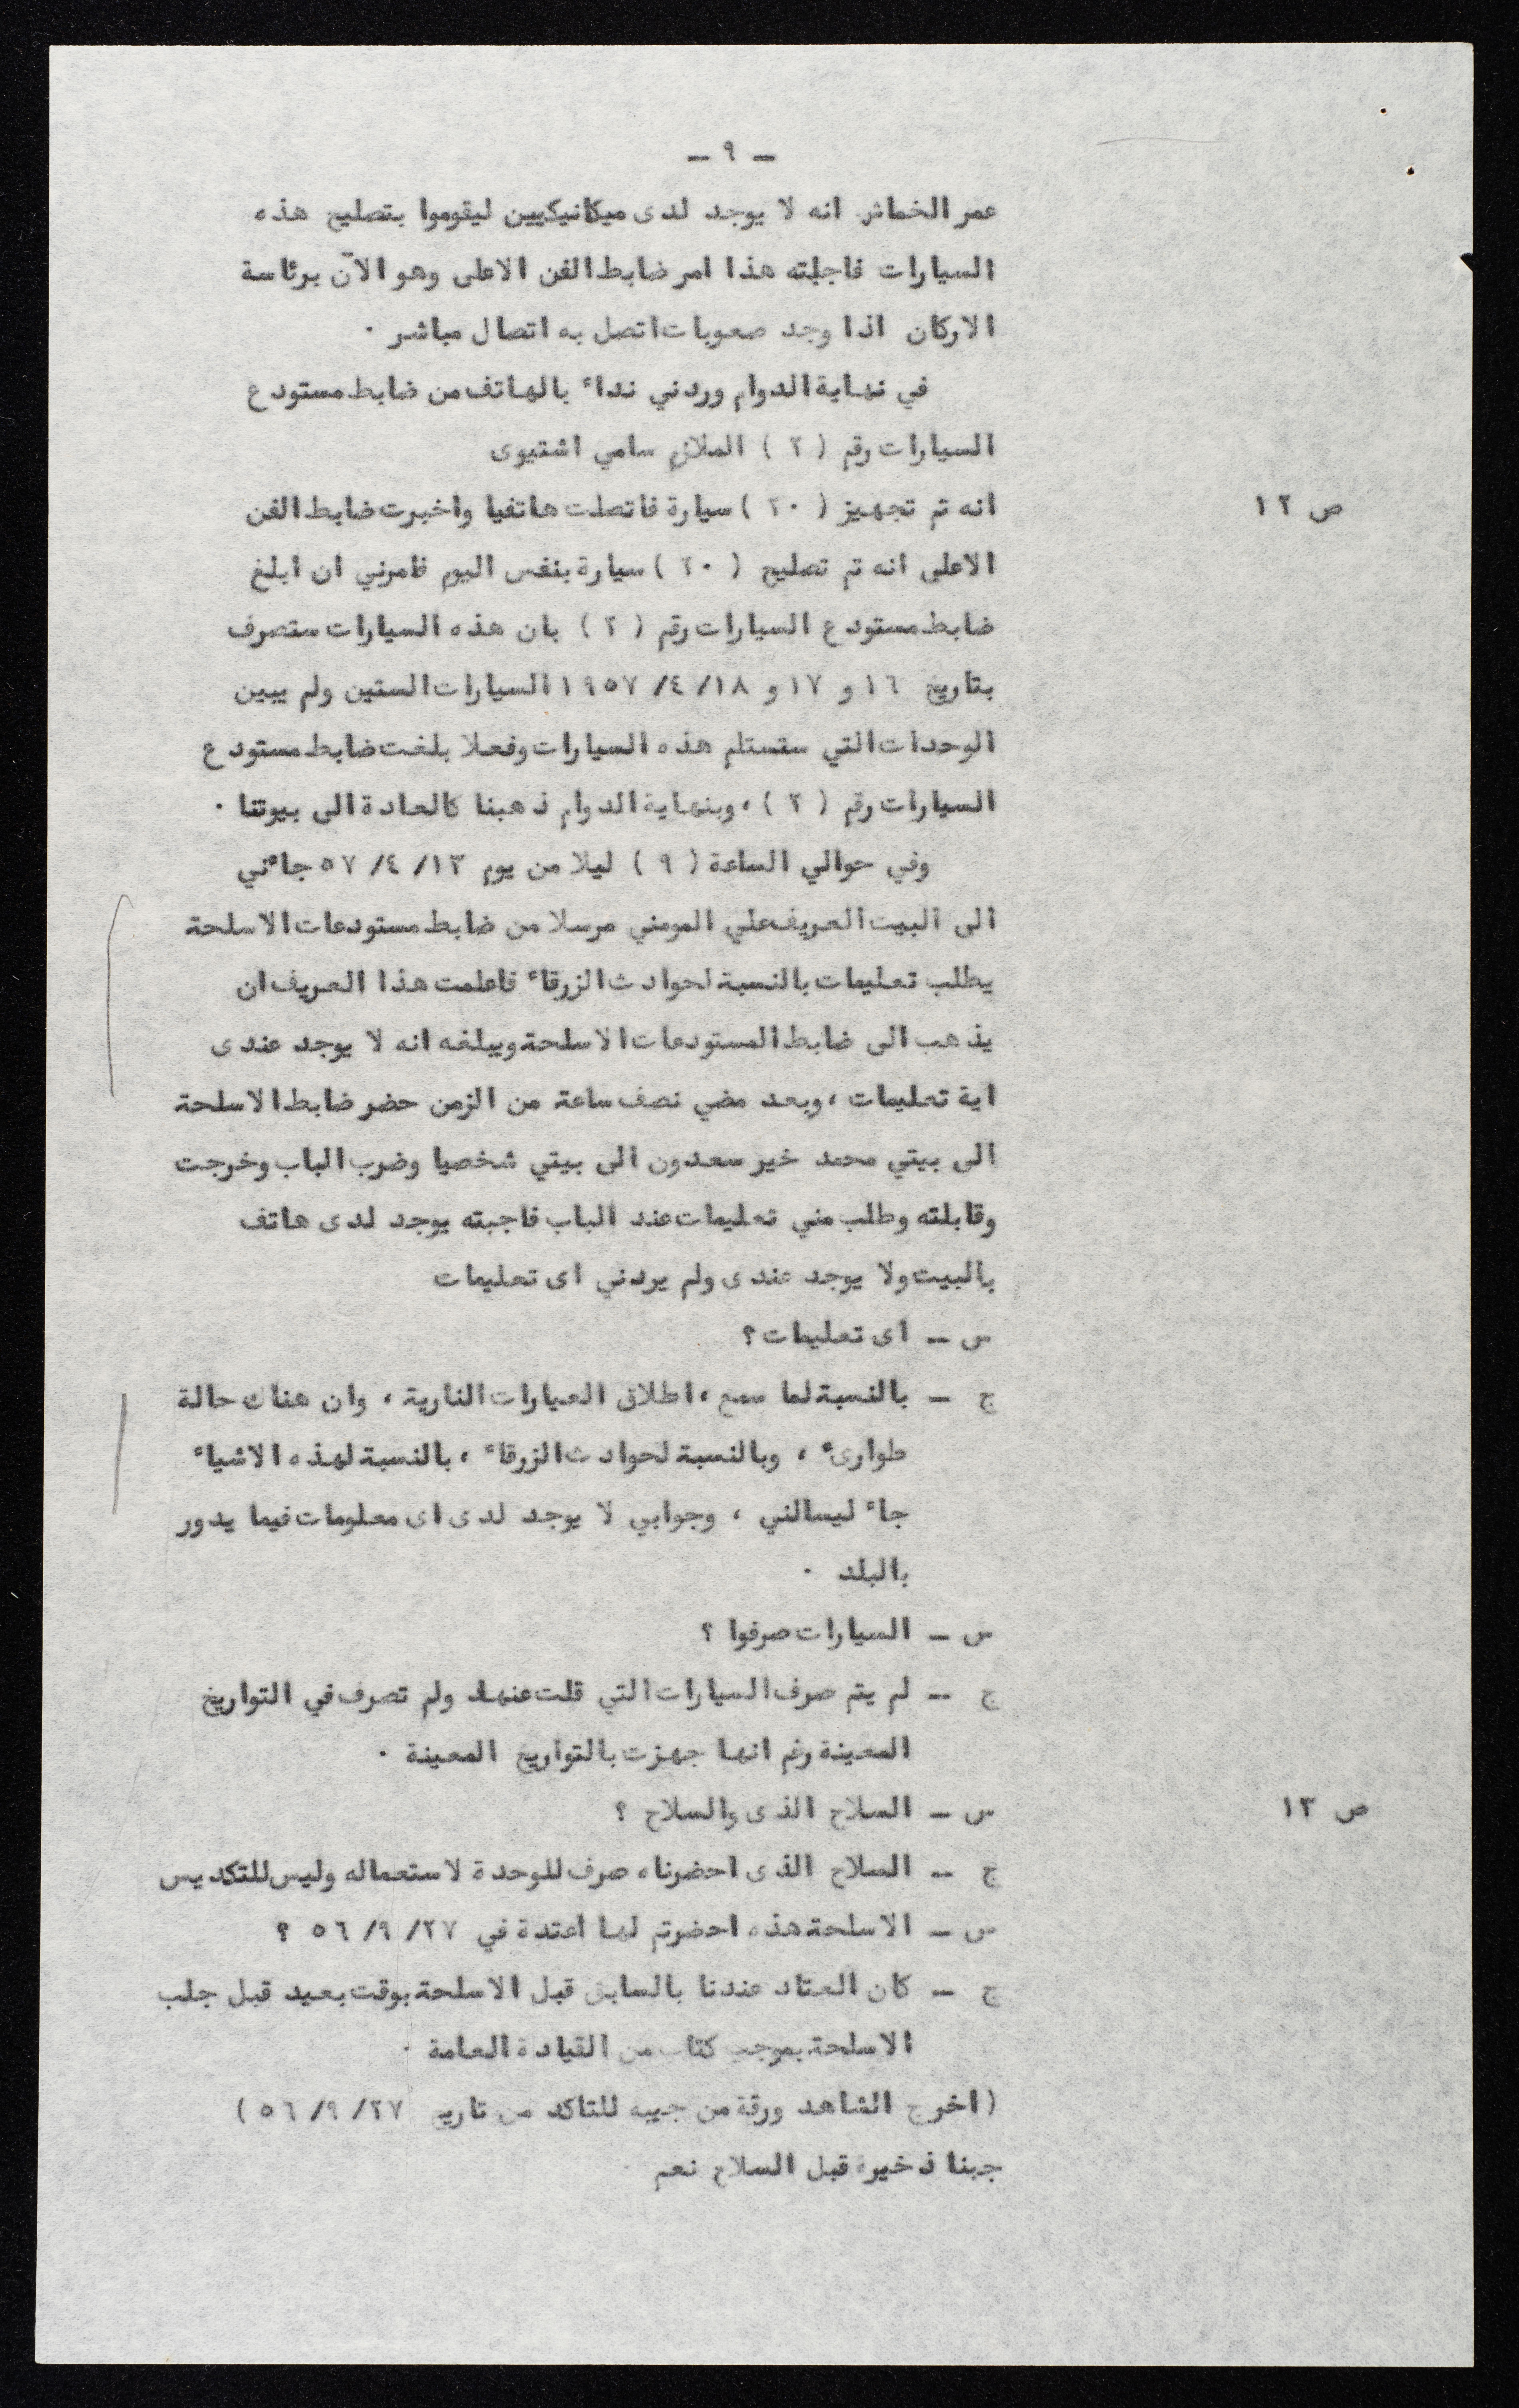 - ٩ -
عمر الخماش انه لا يوجد لدى ميكانيكيين ليقوموا بتصليح هذه
السيارات فاجبته هذا امر ضابط الفن الاعلى وهو الآن برئاسة
الاركان اذا وجد صعوبات اتصل به اتصال مباشر ٠
في نهاية الدوام وردني نداء بالهاتف من ضابط مستودع
السيارات رقم ( ٢ ) الملازم سامي اشتيوى
ص ١٢ انه تم تجهيز ( ٢٠ ) سيارة فاتصلت هاتفيا واخبرت ضابط الفن
الاعلى انه تم تصليح ( ٢٠ ) سيارة بنفس اليوم فامرني ان ابلغ
ضابط مستودع السيارات رقم ( ٢ ) بان هذه السيارات ستصرف
بتاريخ ١٦ و ١٧ و ١٨/ ٤/ ١٩٥٧ السيارات الستين ولم يبين
الوحدات التي ستستلم هذه السيارات وفعلا بلغت ضابط مستودع
السيارات رقم ( ٢ ) ، وبنهاية الدوام ذهبنا كالعادة الى بيوتنا ٠
وفي حوالي الساعة ( ٩ ) ليلا من يوم ١٣/ ٤/ ٥٧ جاءني
الى البيت العريف علي المومني مرسلا من ضابط مستودعات الاسلحة
يطلب تعليمات بالنسبة لحوادث الزرقاء فاعلمت هذا العريف ان
يذهب الى ضابط المستودعات الاسلحة ويبلغه انه لا يوجد عندى
اية تعليمات ، وبعد مضي نصف ساعة من الزمن حضر ضابط الاسلحة
الى بيتي محمد خير سعدون الى بيتي شخصيا وضرب الباب وخرجت
وقابلته وطلب مني تعليمات عند الباب فاجبته يوجد لدى هاتف
بالبيت ولا يوجد عندى ولم يردني اى تعليمات
س - اى تعليمات ؟
ج - بالنسبة لما سمع ، اطلاق العيارات النارية ، وان هناك حالة
طوارىء ، وبالنسبة لحوادث الزرقاء ، بالنسبة لهذه الاشياء
جاء ليسالني ، وجوابي لا يوجد لدى اى معلومات فيما يدور
بالبلد ٠
س - السيارات صرفوا ؟
ج - لم يتم صرف السيارات التي قلت عنها ولم تصرف في التواريخ
المعينة رغم انها جهزت بالتواريخ المعينة ٠
ص ١٣ س - السلاح الذى والسلاح ؟
ج - السلاح الذى احضرناه صرف للوحدة لاستعماله وليس للتكديس
س - الاسلحة هذه احضرتم لها اعتدة في ٢٧/ ٩/ ٥٦ ؟
ج - كان العتاد عندنا بالسابق قبل الاسلحة بوقت بعيد قبل جلب
الاسلحة بموجب كتاب من القيادة العامة ٠
( اخرج الشاهد ورقة من جيبه للتاكد من تاريخ ٢٧/ ٩/ ٥٦ )
جبنا ذخيرة قبل السلاح نعم